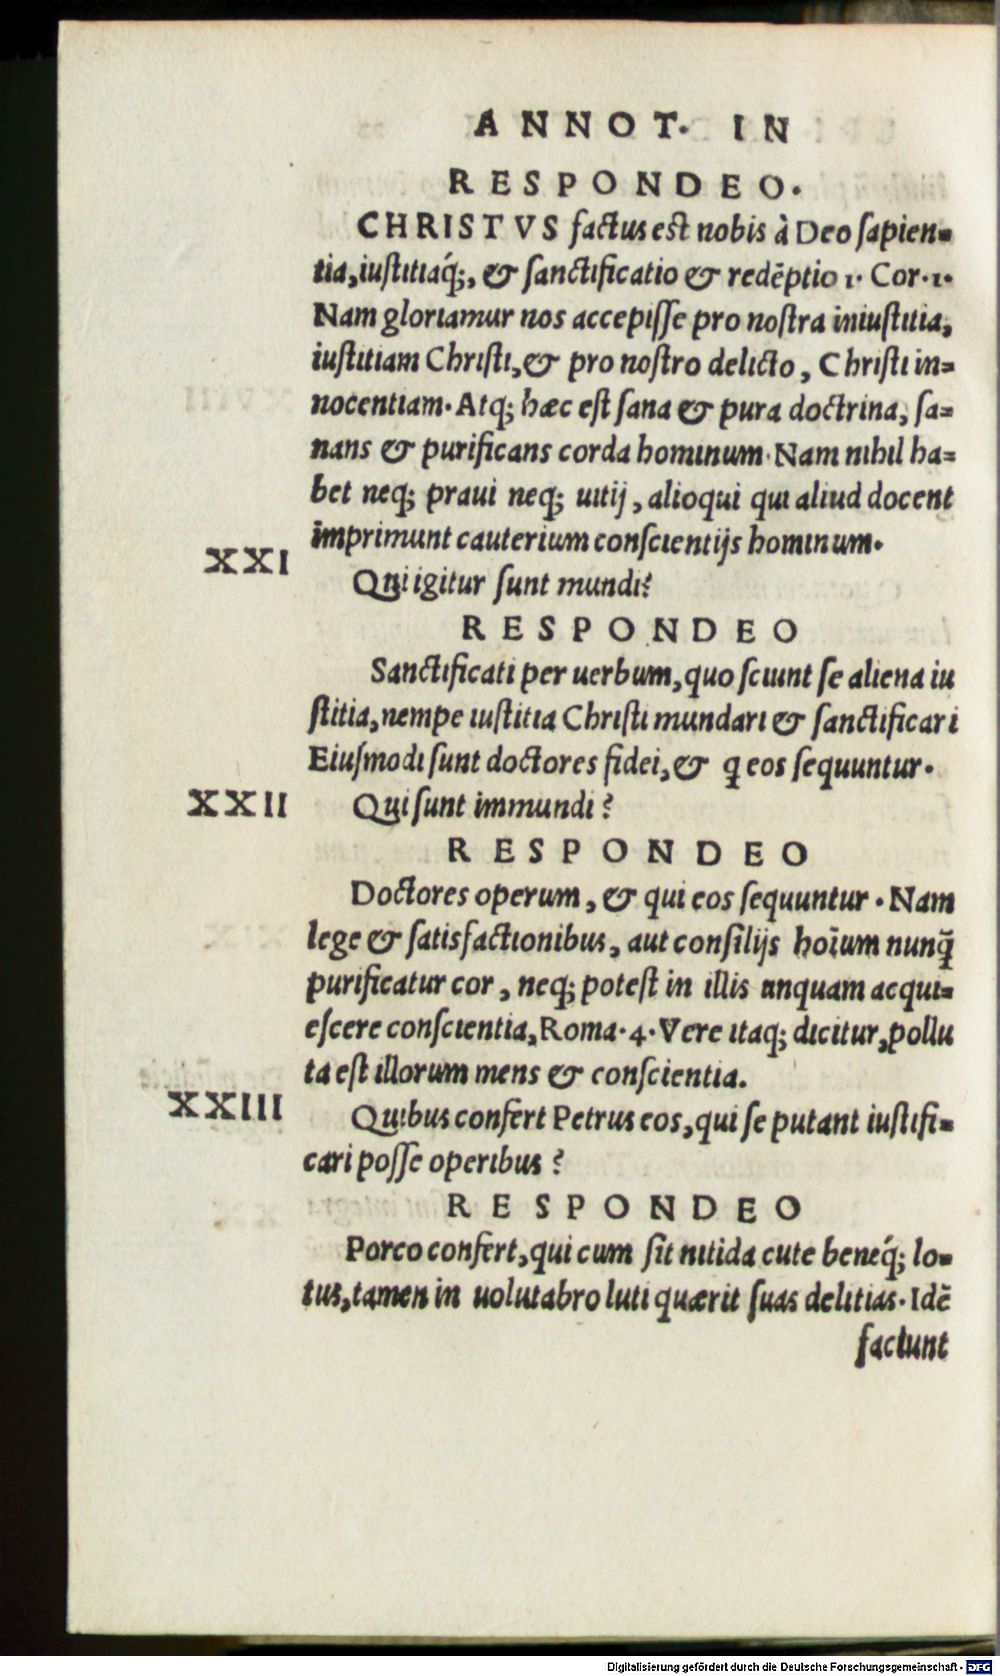 ANNOT. IN
RESPONDEO.
CHRISTVS factus est nobis à Deo sapien=
tia, iustitiaq́;, & sanctificatio & redēptio 1. Cor. 1.
Nam gloriamur nos accepisse pro nostra iniustitia,
iustitiam Christi, & pro nostro delicto, Christi in=
nocentiam. Atq; hæc est sana & pura doctrina, sa=
nans & purificans corda hominum. Nam nihil ha=
bet neq; praui neq; uitij, alioqui qui aliud docent
imprimunt cauterium conscientijs hominum.
XXI
Qui igitur sunt mundi?
RESPONDEO
Sanctificati per uerbum, quo sciunt se aliena iu
stitia, nempe iustitia Christi mundari & sanctificari
Eiusmodi sunt doctores fidei, & q eos sequuntur.
XXII
Qui sunt immundi?
RESPONDEO
Doctores operum, & qui eos sequuntur. Nam
lege & satisfactionibus, aut consilijs hoīum nunq̃
purificatur cor, neq; potest in illis unquam acqui=
escere conscientia, Roma. 4. Vere itaq; dicitur, pollu
ta est illorum mens & conscientia.
XXIII
Quibus confert Petrus eos, qui se putant iustifi=
cari posse operibus?
RESPONDEO
Porco confert, qui cum sit nitida cute beneq́; lo=
tus, tamen in uolutabro luti quærit suas delitias. Idē
faciunt
Digitalisierung gefördert durch die Deutsche Forschungsgemeinschaft - DFG